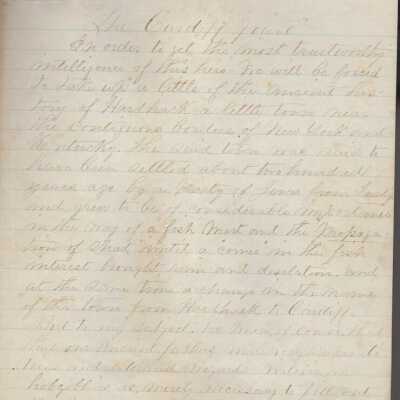 "The Cardiff Giant"
In order to get the most trustworthy
intelligence of this hero we will be forced
to take up a little of the ancient his-
tory of Hardhack a little town near
the contiguous borders of New York and
Kentucky. The said town was said to
have been settled about two hundred
years ago by a party of Jews from
and grew to be of considerable importance
in the way of a fish mart and the propaga-
tion of shad until a "corner" in the fish
interest brought ruin and desolation, and
at the same time a change in the name
of the town from Hardhack to Cardiff.
But to my subject. We
our ancient
and
is merely necessary to fill out